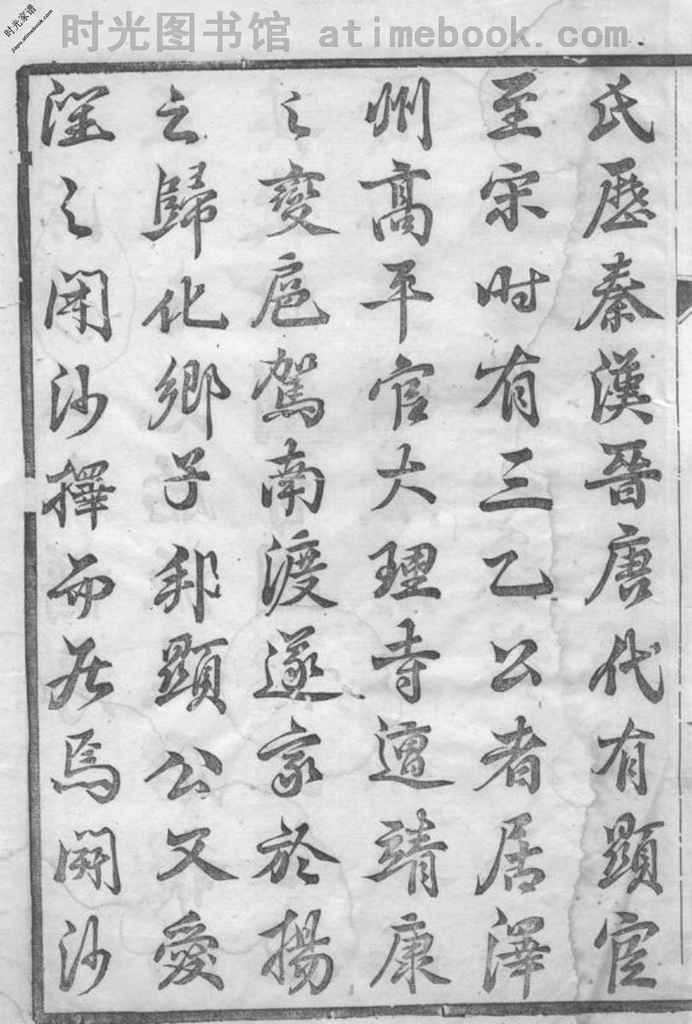 时光家谱
jiapu.atimebook.com
时光图书馆 atimebook.com
氏歷秦漢晉唐代有顯宦
至宋时有三乙公者居澤
州高平官大理寺遭靖康
之變扈駕南渡遂家於揚
之歸化鄉子邦顯公又愛
之開沙擇而居焉開沙